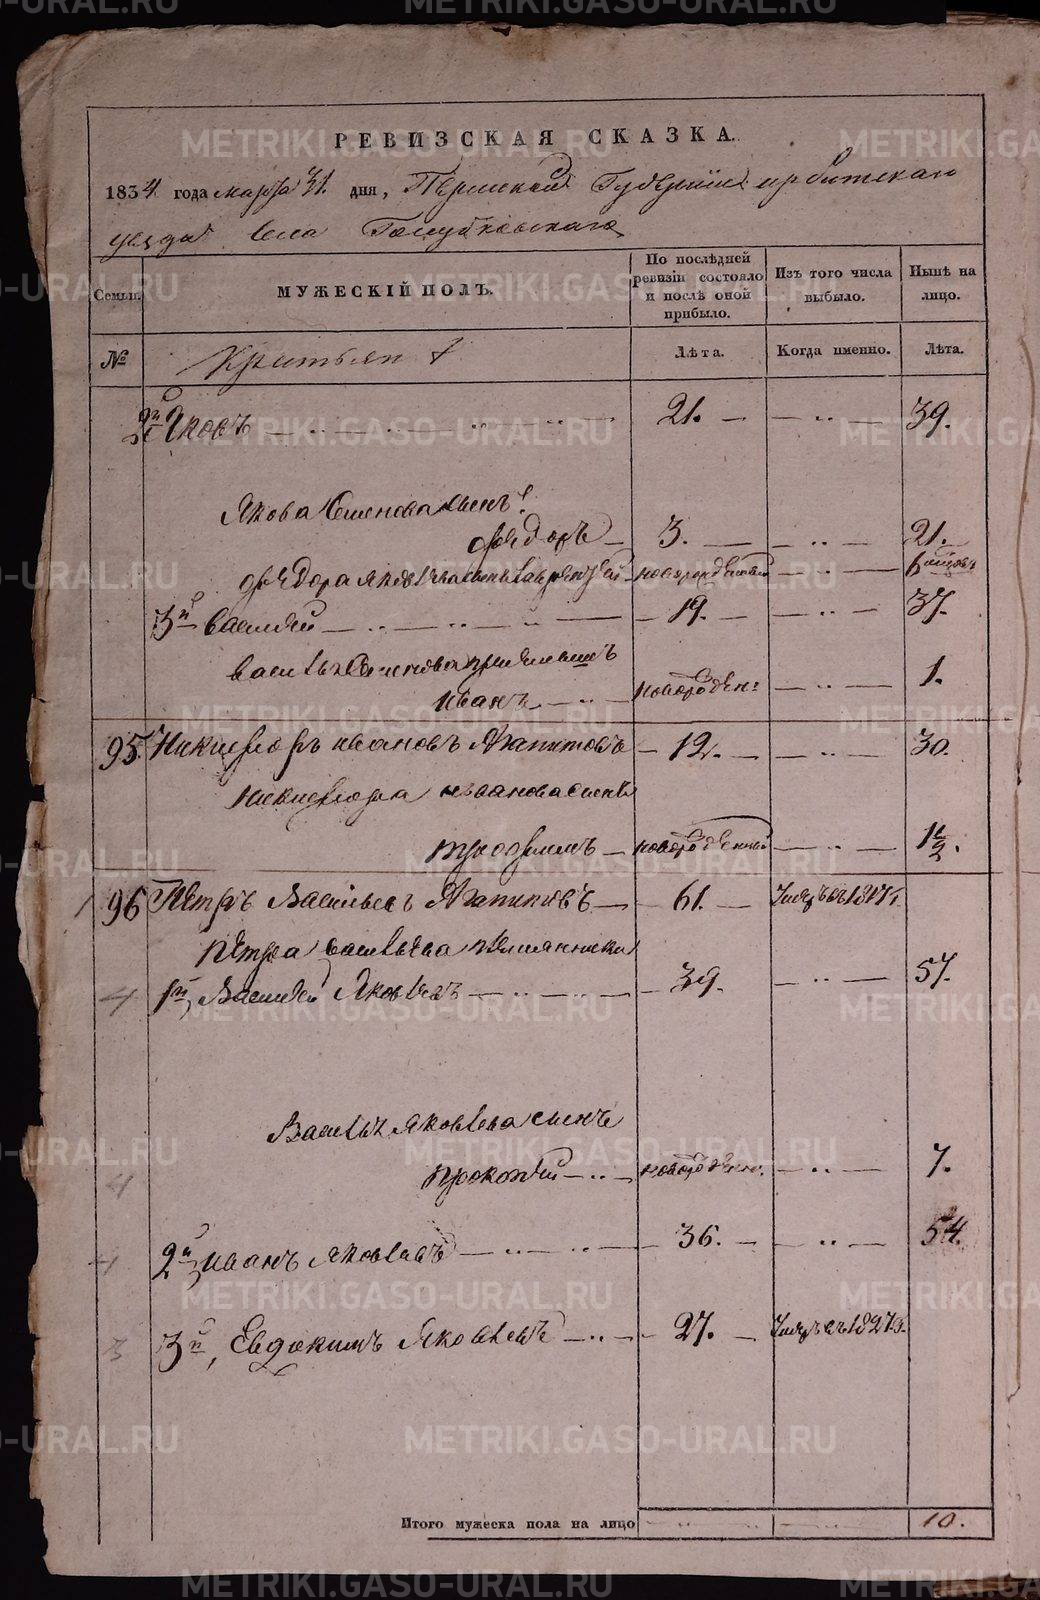 METRIKI.GASO-URAL.RU
РЕВИЗСКАЯ СКАЗКА.
1834 года марта 31. дня, Пермской Губернии ирбитскаго
уезда Села Голубковскаго
Семьи. МУЖЕСКІЙ ПОЛЪ. По послѣдней ревизіи состояло и послѣ оной прибыло. Изъ того числа выбыло. Нынѣ на лицо.
№ Лѣта. Когда именно. Лѣта.
2й Яковъ — 21. — — „ — 39.
Якова Семенова сынъ
Федоръ — 3. — — „ — 21.
Федора Яковлева сынъ Лаврентей новорожденный — „ —
3й Василей — 19. — — „ — 37.
Василья Семенова
Иванъ — новорожден: — „ — 1.
95. Никифоръ Ивановъ Агапитовъ — 12. — — „ — 30.
Никифора Иванова сынъ
Трофимъ — новорожденный — „ — 1 1/2.
96 Петръ Васильевъ Агапитовъ — 61. — Умеръ въ
Петра Васильева племянники
4 1й, Василей Яковлевъ — 39. — „ — 57.
Василья Яковлева сынъ
4 Прокопей — новорожден. — „ — 7.
4 2й, Иванъ Яковлевъ — 36. — — „ — 54.
3 3й, Евдокимъ Яковлевъ — 27. — Умеръ въ 1827
Итого мужеска пола на лицо — „ — — „ — 10.